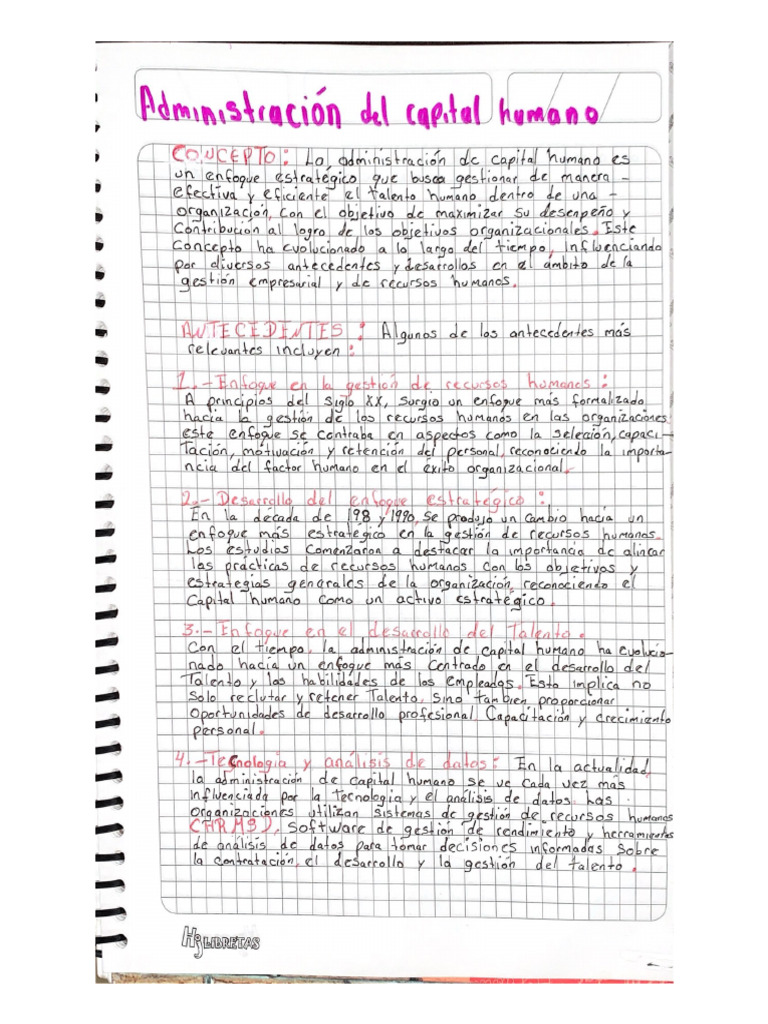 Administración del capital humano
CONCEPTO: La administración de capital humano es
un enfoque estratégico que busca gestionar de manera -
efectiva y eficiente el talento humano dentro de una -
organización, con el objetivo de maximizar su desenpeño y
Contribución al logro de los objetivos organizacionales. Este
Concepto ha evolucionado a lo largo del tiempo, influenciando
por diversos antecedentes y desarrollos en el ámbito de la
gestión empresarial y de recursos humanos.
ANTECEDENTES: Algunos de los antecedentes más
relevantes incluyen:
1.-Enfoque en la gestión de recursos humanos:
A principios del Siglo XX, Surgio un enfoque más formalizado
hacia la gestión de los recursos humanos en las organizaciones
este enfoque se contraba en aspectos como la selección, capaci-
Tación, motivación y retención del personal, reconociendo la importa-
ncia del factor humano en el éxito organizacional.
2.- Desarrollo del enfoque estratégico:
En la década de 198 y 1990, se produjo un cambio hacia un
enfoque más estratégico en la gestión de recursos humanos.
Los estudios Comenzaron a destacar la importancia de alinear
las prácticas de recursos humanos con los objetivos y
estrategias generales de la organización, reconociendo el
Capital humano Como un activo estratégico.
3.- Enfoque en el desarrollo del Talento.
Con el tiempo, la administración de capital humano ha evolucio-
nado hacia un enfoque más Centrado en el desarrollo del
Talento y las habilidades de los empleados. Esto implica no
Solo reclutar y retener Talento, Sino Tambien proporcionar
Oportunidades de desarrollo profesional Capacitación y crecimiento
personal.
4.-Tecnologia y análisis de datos: En la actualidad,
la administración de capital humano se ve cada vez más
influenciada por la Tecnologia y el análisis de datos. Las
organizaciones utilizan sistemas de gestión de recursos humanos
(HRMS), Software de gestión de rendimiento y herramientas
de análisis de datos para tomar decisiones informadas Sobre
la contratación, el desarrollo y la gestión del talento.
HJ LIBRETAS